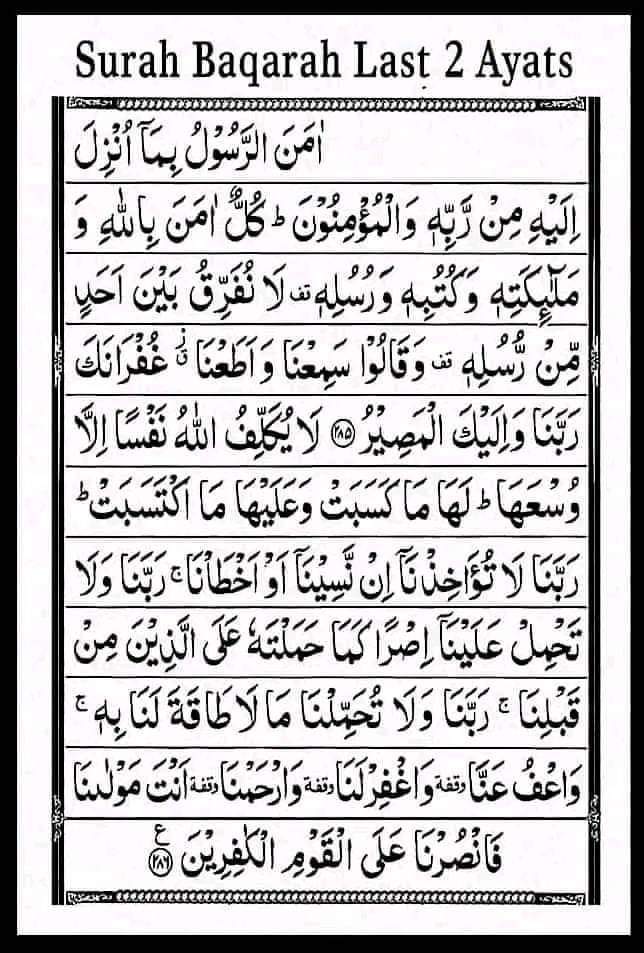 Surah Baqarah Last 2 Ayats
اٰمَنَ الرَّسُوْلُ بِمَاۤ اُنْزِلَ
اِلَيْهِ مِنْ رَّبِّهٖ وَالْمُؤْمِنُوْنَ ؕ كُلٌّ اٰمَنَ بِاللّٰهِ وَ
مَلٰٓئِكَتِهٖ وَكُتُبِهٖ وَرُسُلِهٖ قف لَا نُفَرِّقُ بَيْنَ اَحَدٍ
مِّنْ رُّسُلِهٖ قف وَقَالُوْا سَمِعْنَا وَاَطَعْنَا ۗ غُفْرَانَكَ
رَبَّنَا وَاِلَيْكَ الْمَصِيْرُ ۝۲۸۵ لَا يُكَلِّفُ اللّٰهُ نَفْسًا اِلَّا
وُسْعَهَا ؕ لَهَا مَا كَسَبَتْ وَعَلَيْهَا مَا اكْتَسَبَتْ ؕ
رَبَّنَا لَا تُؤَاخِذْنَاۤ اِنْ نَّسِيْنَاۤ اَوْ اَخْطَاْنَا ۚ رَبَّنَا وَلَا
تَحْمِلْ عَلَيْنَاۤ اِصْرًا كَمَا حَمَلْتَهٗ عَلَى الَّذِيْنَ مِنْ
قَبْلِنَا ۚ رَبَّنَا وَلَا تُحَمِّلْنَا مَا لَا طَاقَةَ لَنَا بِهٖ ۚ
وَاعْفُ عَنَّا وقفة وَاغْفِرْ لَنَا وقفة وَارْحَمْنَا وقفة اَنْتَ مَوْلٰىنَا
فَانْصُرْنَا عَلَى الْقَوْمِ الْكٰفِرِيْنَ ۝۲۸۶ ع